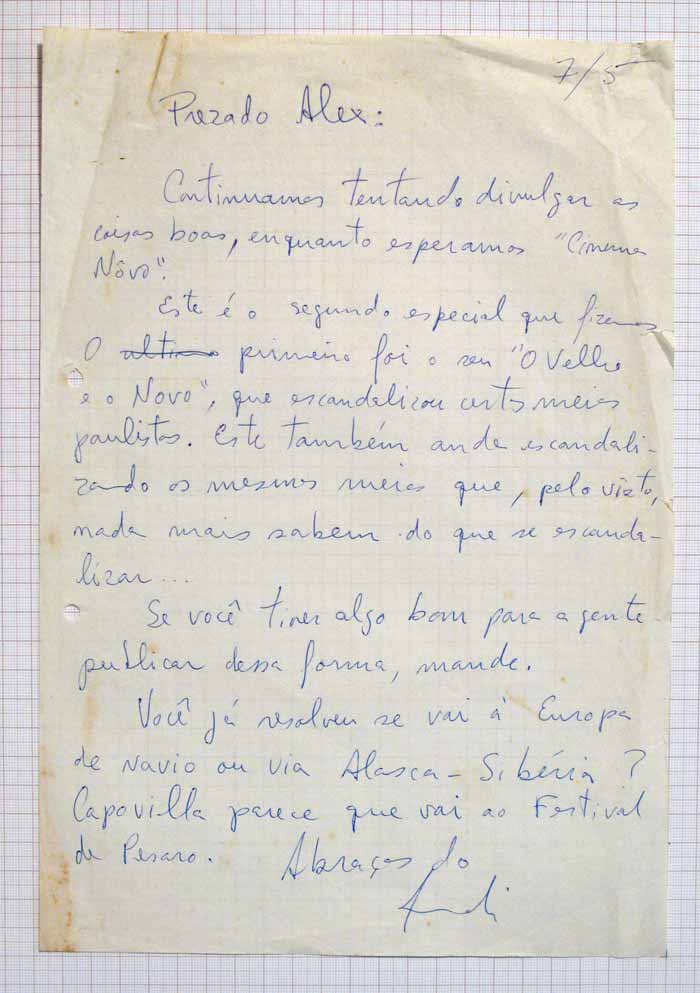 7/5
Prezado Alex:
Continuamos tentando divulgar as
coisas boas, enquanto esperamos "Cinema
Nôvo".
Este é o segundo especial que fizemos
O ultimo primeiro foi o seu "O Velho
e o Novo", que escandalizou certos meios
paulistas. Este também anda escandali-
zando os mesmos meios que, pelo visto,
nada mais sabem do que se escanda-
lizar...
Se você tiver algo bom para a gente
publicar dessa forma, mande.
Você já resolveu se vai à Europa
de navio ou via Alasca - Sibéria ?
Capovilla parece que vai ao Festival
de Pesaro.
Abraços do